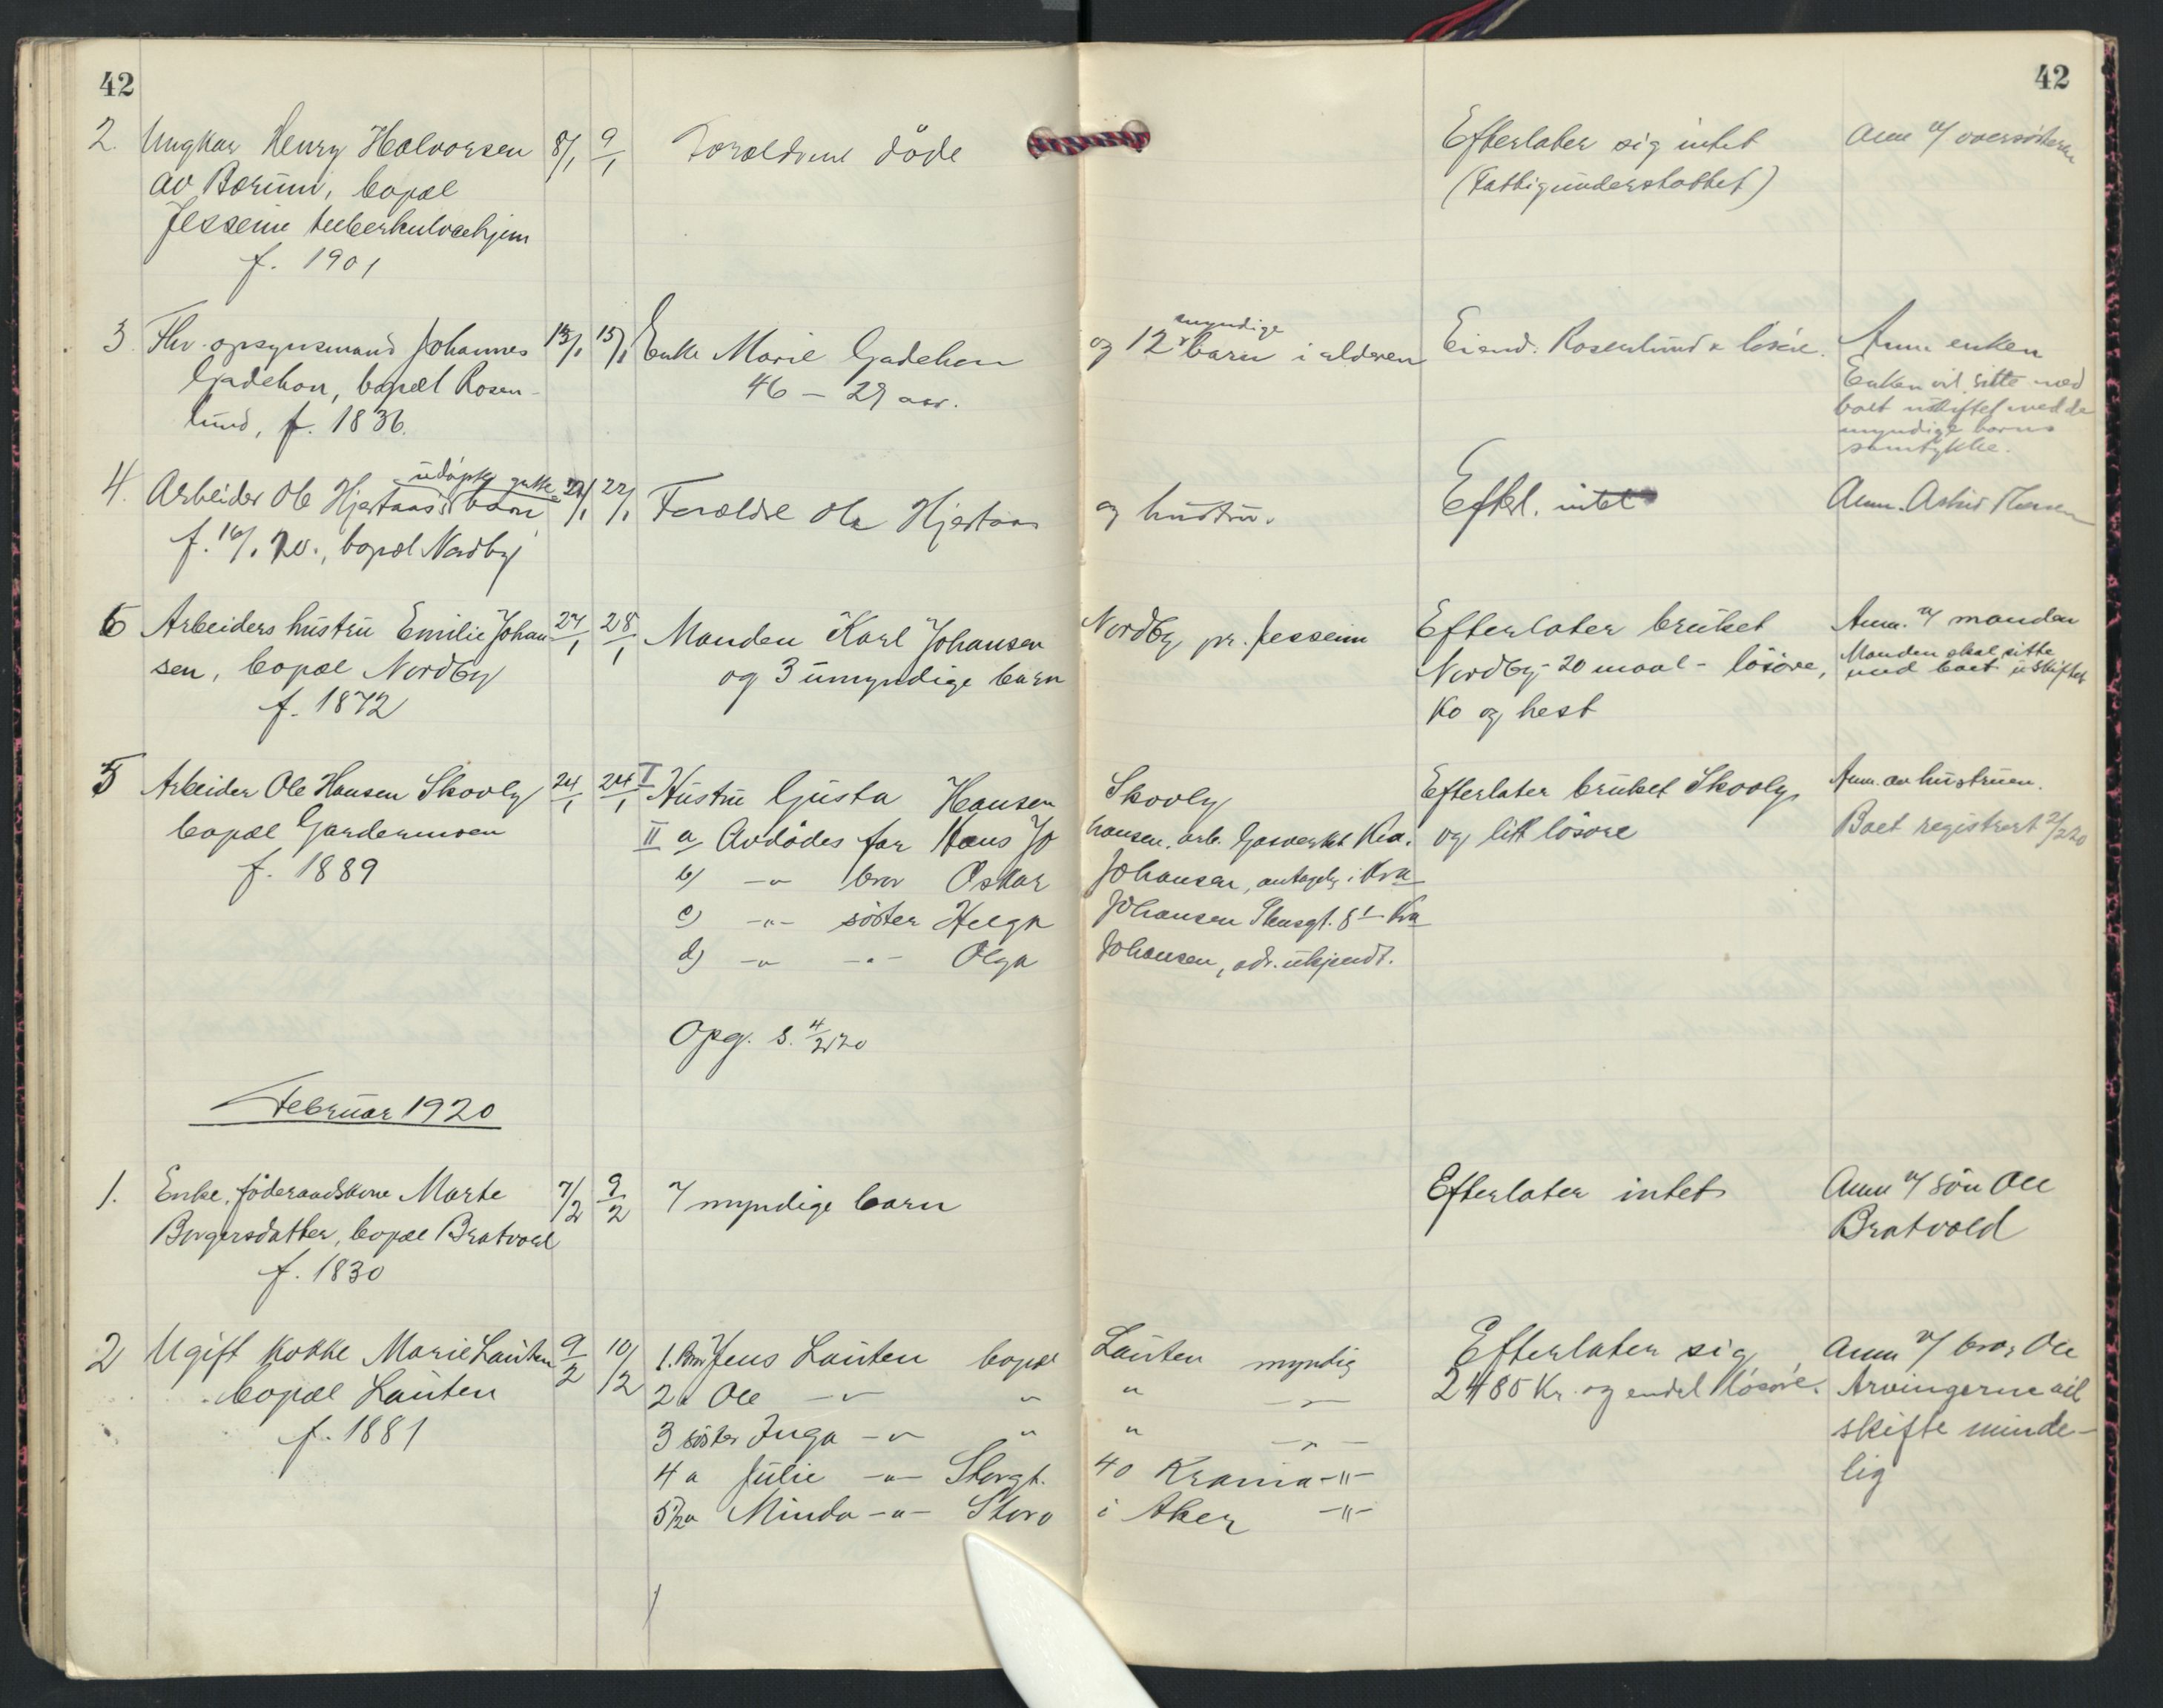 42
42
2. Ungkar Henry Halvorsen 8/1 9/1 Forældrene döde Efterlater sig intet Anm v/
av Bærum, bopæl (Fattigunderstöttet)
Jessheim tuberkulosehjem
f. 1901
3. Fhv. opsynsmand Johannes 13/1 15/1 Enke Marie Gadehon og 12 myndige barn i alderen Eiend. Rosenlund & lösöre. Anm enken
Gadehon, bopæl Rosen- 46 – 29 aar. Enken vil sitte med
lund, f. 1836. boet uskiftet med de
myndige barns
samtykke.
4. Arbeider Ole Hjertaas's udöpte gutte barn 22/1 22/1 Forældre Ole Hjertaas og hustru. Efterl. intet Anm. Astrid
f. 16/1 20., bopæl Nordby
6 Arbeiders hustru Emilie Johan 27/1 28/1 Manden Karl Johansen Nordby pr. Jessheim Efterlater bruket Anm. v/ manden
sen, bopæl Nordby og 3 umyndige barn Nordby - 20 maal - lösöre, Manden skal sitte
f. 1872 ko og hest med boet uskiftet
5 Arbeider Ole Hansen Skovly 24/1 24/1 I Hustru Gusta Hansen Skovly Efterlater bruket Skovly Anm. av hustruen.
bopæl Gardermoen II a Avdödes far Hans Jo hansen, arb. Gasverket Kra. og litt lösöre Boet registrert 2/2 20
f. 1889 b) -"- bror Oskar Johansen, antagelig i Kra
c) -"- söster Helga Johansen Stensgt. 8 I Kra
d) -"- -"- Olga Johansen, adr. ukjendt.
Opg. s. 4/2 20
Februar 1920
1. Enke, föderaadskone Marte 7/2 9/2 7 myndige barn Efterlater intet Anm v/ sön Ole
Borgersdatter, bopæl Bratvold Bratvold
f. 1830
2 Ugift kokke Marie Lauten 9/2 10/2 1. Bror Jens Lauten bopæl Lauten myndig Efterlater sig Anm v/ bror Ole
bopæl Lauten 2 " Ole -"- " " -"- 2485 Kr. og endel lösöre. Arvingerne vil
f. 1881 3 söster Inga -"- " " -"- skifte minde-
4 " Julie -"- Storgt. 40 Krania -"- lig
5 1/2 " Minda -"- Storo i Aker -"-